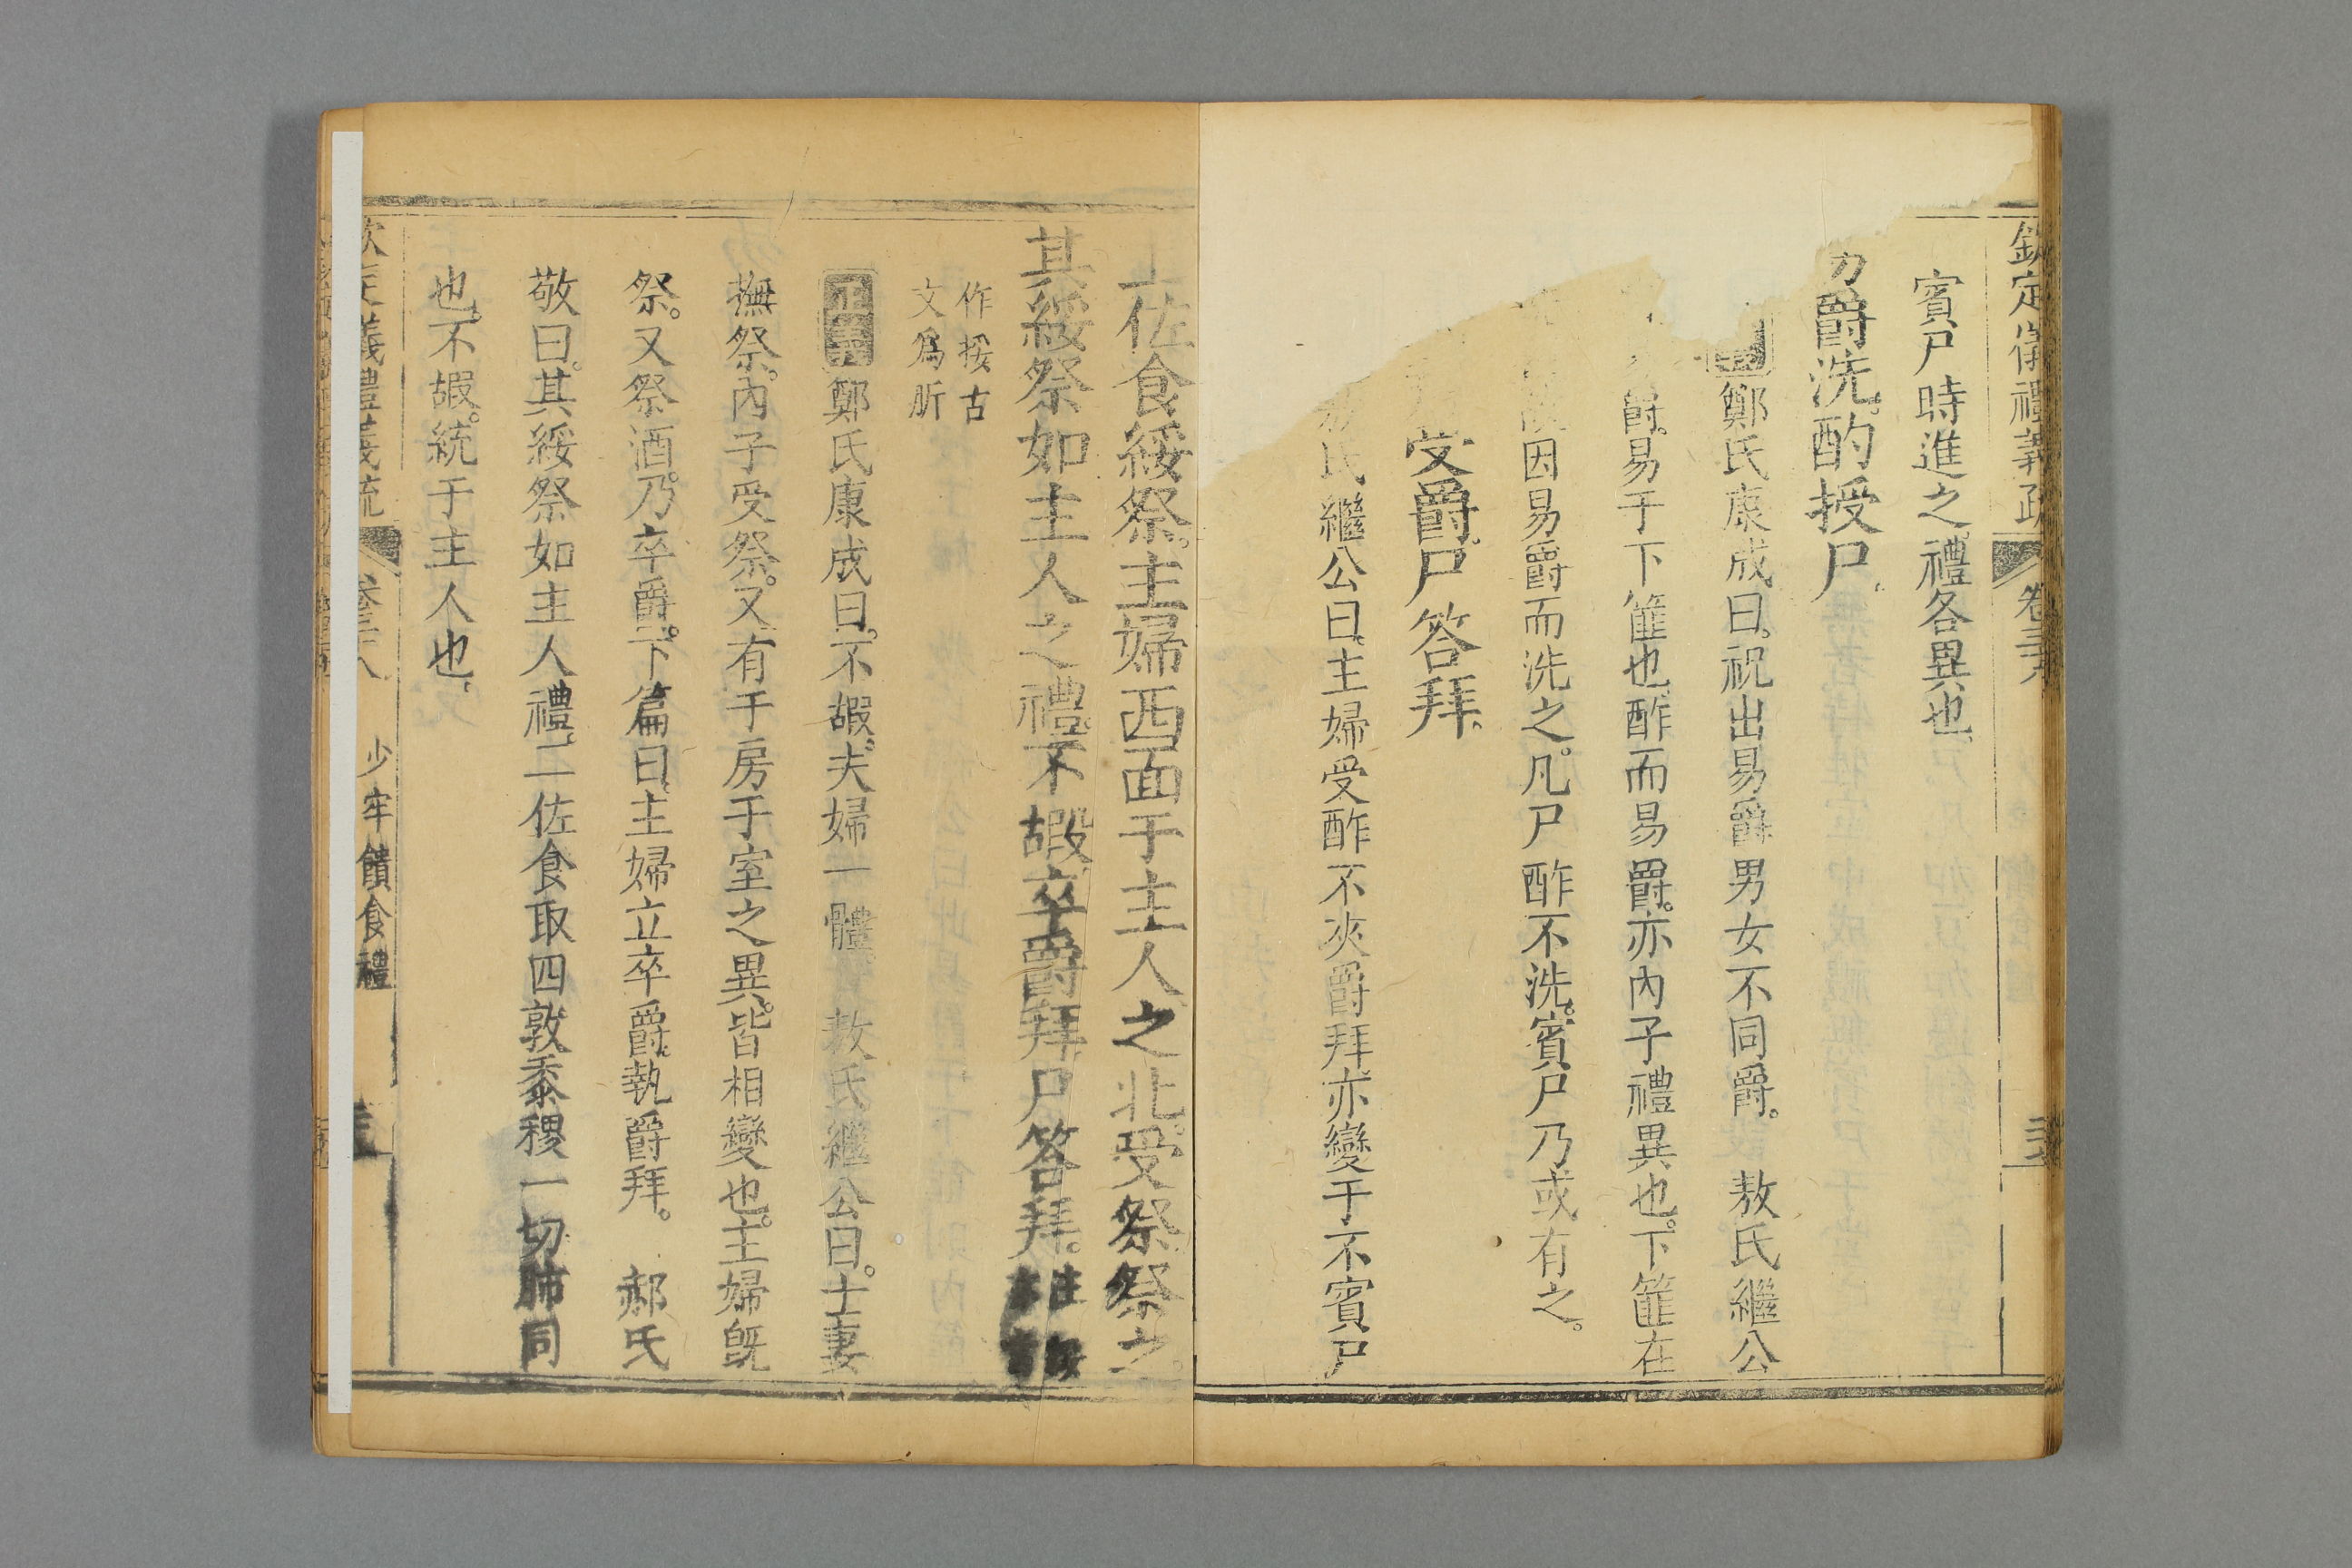 欽定儀禮義疏 卷三十八
賓尸時進之禮各異也
爵洗酌授尸
鄭氏康成曰祝出易爵男女不同爵。 敖氏繼公
爵易于下篚也酢而易爵亦內子禮異也。下篚在
因易爵而洗之。凡尸酢不洗。賓尸乃或有之。
受爵尸答拜
氏繼公曰主婦受酢不夾爵拜亦變于不賓尸
佐食綏祭。主婦西面于主人之北。受祭祭之。
其綏祭如主人之禮。不嘏。卒爵拜。尸答拜。
作挼古
文爲肵
正義鄭氏康成曰。不嘏。夫婦一體 敖氏繼公曰。士妻
撫祭。內子受祭。又有于房于室之異。皆相變也。主婦旣
祭。又祭酒。乃卒爵。下篇曰主婦立卒爵執爵拜。 郝氏
敬曰。其綏祭如主人禮。二佐食取四敦黍稷一切肺同
也。不嘏。統于主人也。
儀禮義疏
少牢饋食禮